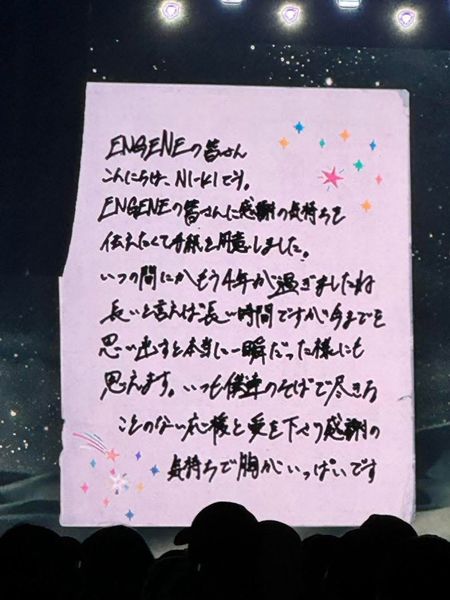 ENGENEの皆さん
こんにちは、NI-KIです。
ENGENEの皆さんに感謝の気持ちを
伝えたくて手紙を用意しました。
いつの間にかもう4年が過ぎましたね
長いと言えば長い時間ですが今までを
思い出すと本当に一瞬だった様にも
思えます。いつも僕達のそばで尽きる
ことのない応援と愛を下さり感謝の
気持ちで胸がいっぱいです